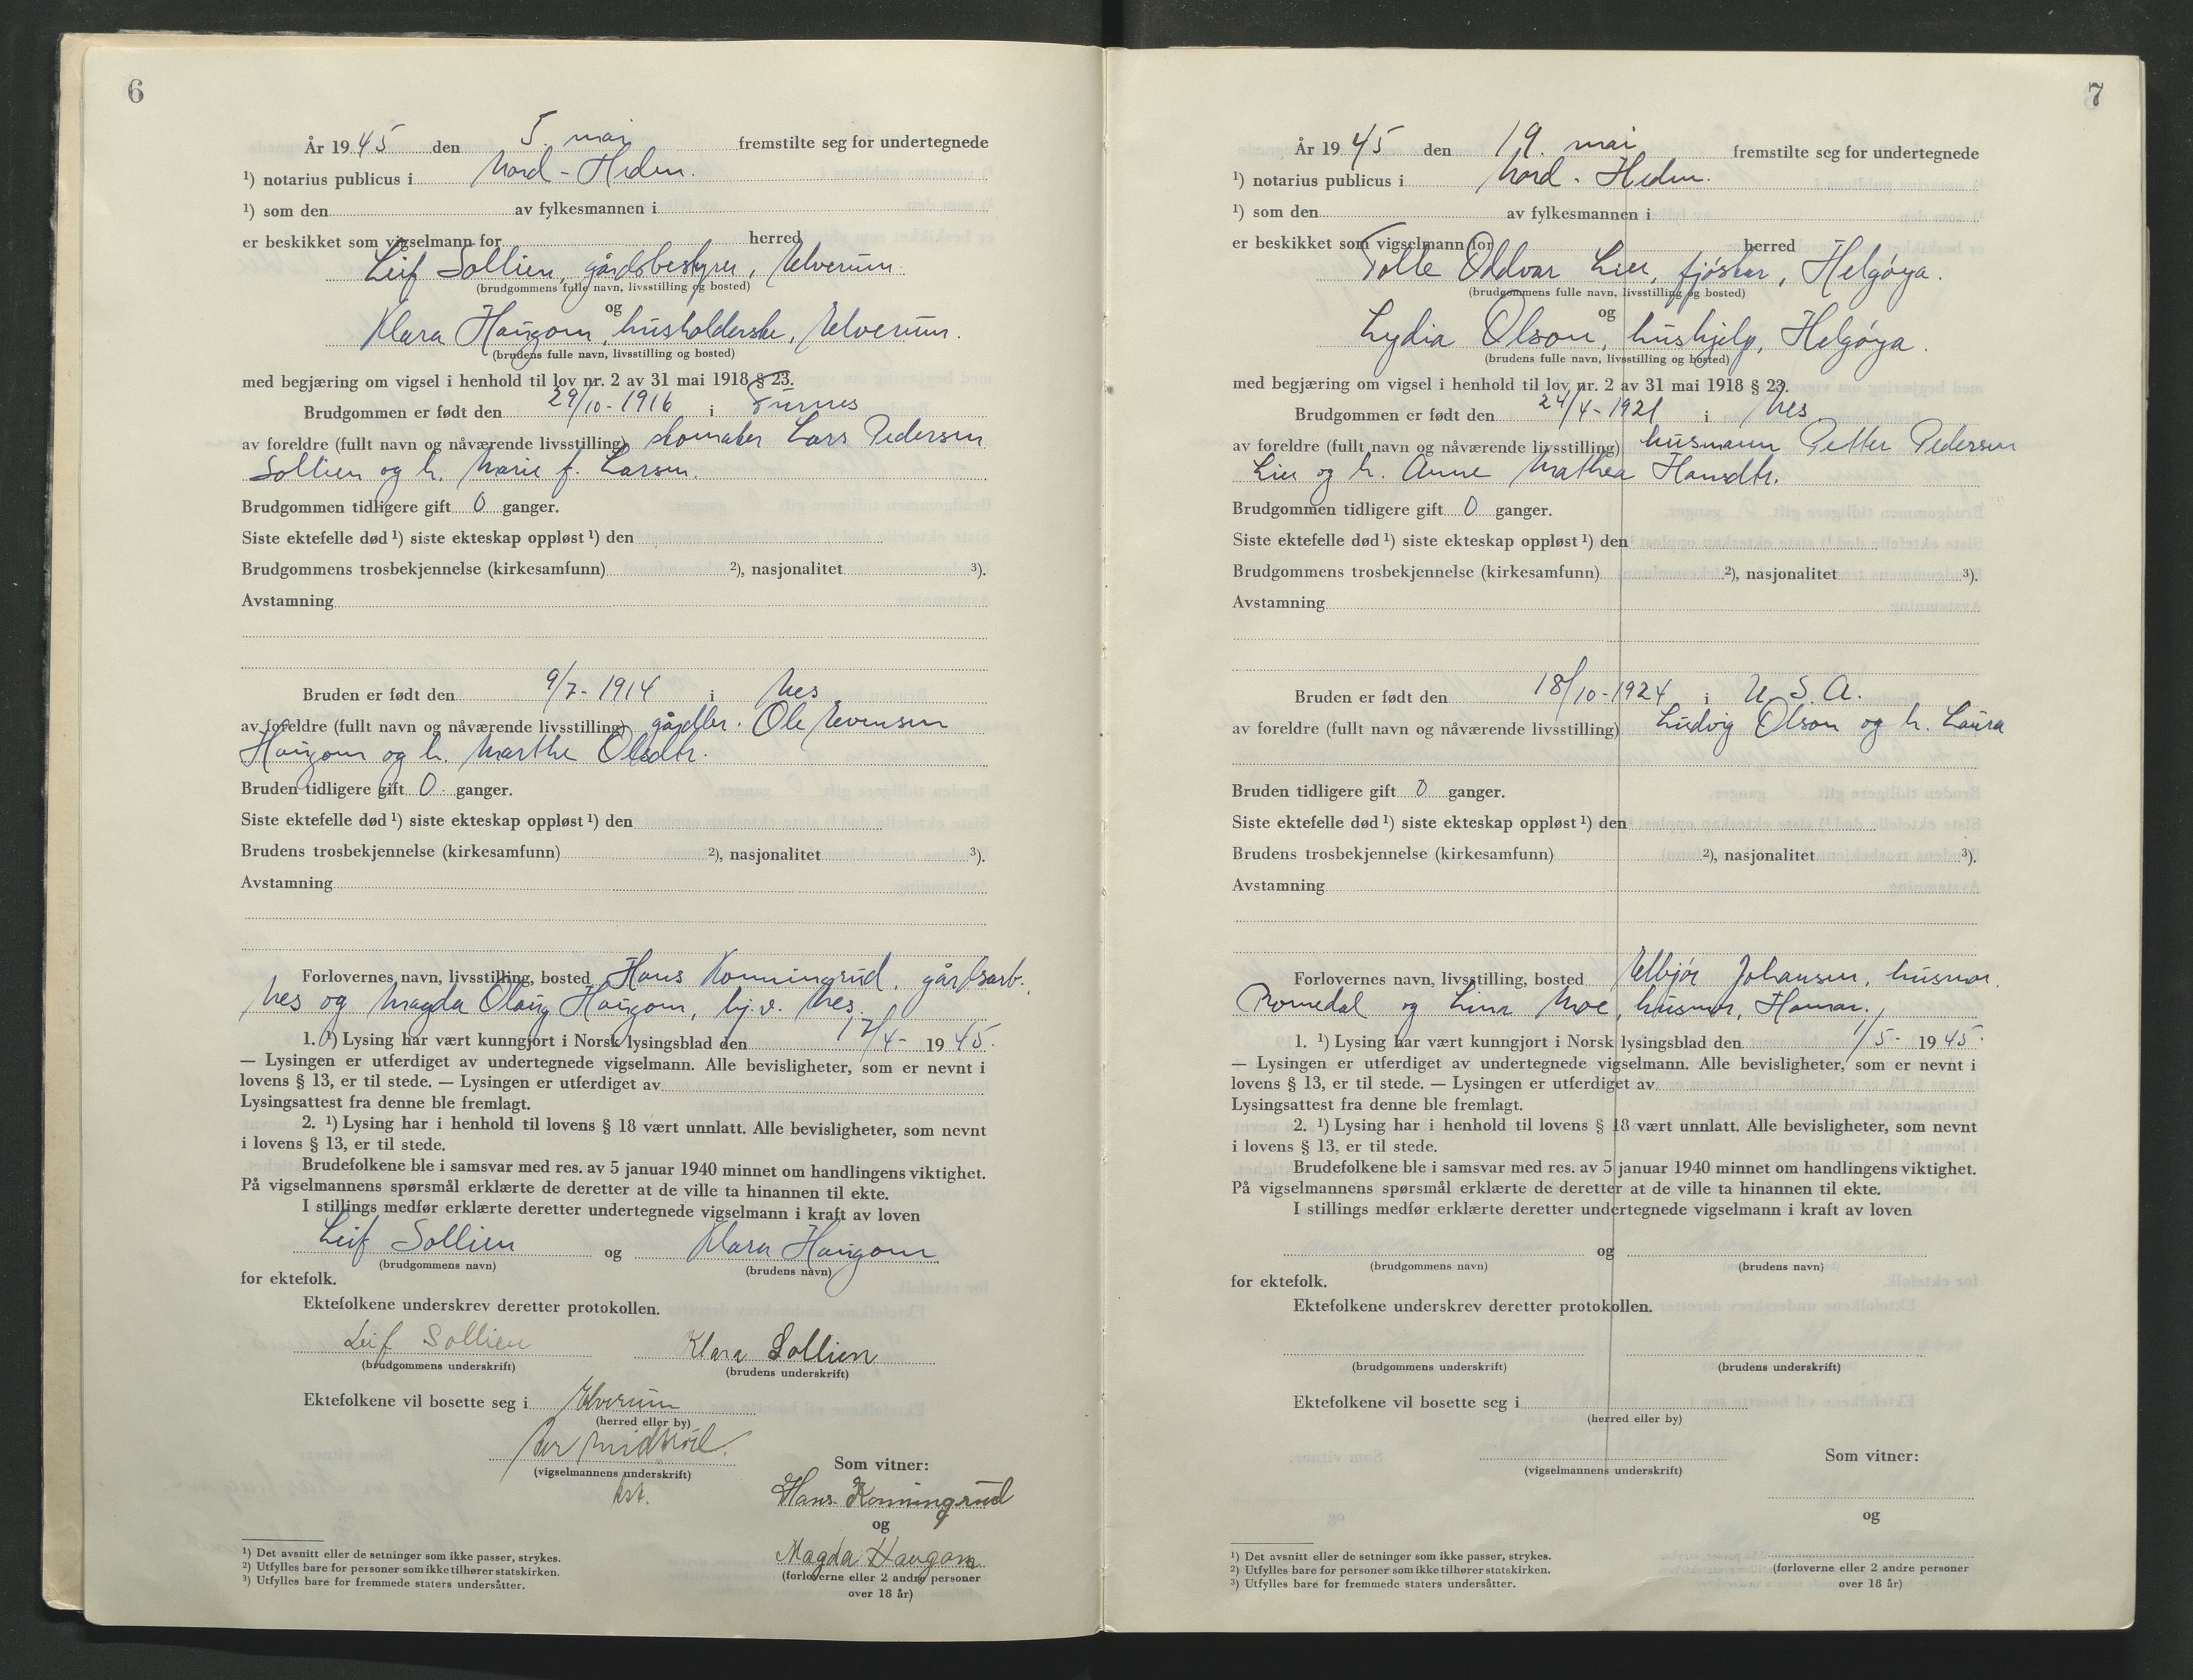 6
År 1945 den 5. mai fremstilte seg for undertegnede
¹) notarius publicus i Nord-Hedm.
¹) som den av fylkesmannen i
er beskikket som vigselmann for herred
Leif Sollien, gårdsbestyrer, Elverum.
(brudgommens fulle navn, livsstilling og bosted)
og
Klara Haugom, husholderske, Elverum.
(brudens fulle navn, livsstilling og bosted)
med begjæring om vigsel i henhold til lov nr. 2 av 31 mai 1918 § 23.
Brudgommen er født den 29/10-1916 i Furnes
av foreldre (fullt navn og nåværende livsstilling) skomaker Lars Pedersen
Sollien og h. Marie f. Larsen.
Brudgommen tidligere gift 0 ganger.
Siste ektefelle død ¹) siste ekteskap oppløst ¹) den
Brudgommens trosbekjennelse (kirkesamfunn) ²), nasjonalitet ³).
Avstamning
Bruden er født den 9/7-1914 i Nes
av foreldre (fullt navn og nåværende livsstilling) gårdbr. Ole Evensen
Haugom og h. Marthe Olsdtr.
Bruden tidligere gift 0 ganger.
Siste ektefelle død ¹) siste ekteskap oppløst ¹) den
Brudens trosbekjennelse (kirkesamfunn) ²), nasjonalitet ³).
Avstamning
Forlovernes navn, livsstilling, bosted Hans Konningsrud, gårdsarb.,
Nes og Magda Olaug Haugom, hj.v. Nes.
1. ¹) Lysing har vært kunngjort i Norsk lysingsblad den 17/4- 1945.
— Lysingen er utferdiget av undertegnede vigselmann. Alle bevisligheter, som er nevnt i
lovens § 13, er til stede. — Lysingen er utferdiget av
Lysingsattest fra denne ble fremlagt.
2. ¹) Lysing har i henhold til lovens § 18 vært unnlatt. Alle bevisligheter, som nevnt
i lovens § 13, er til stede.
Brudefolkene ble i samsvar med res. av 5 januar 1940 minnet om handlingens viktighet.
På vigselmannens spørsmål erklærte de deretter at de ville ta hinannen til ekte.
I stillings medfør erklærte deretter undertegnede vigselmann i kraft av loven
Leif Sollien og Klara Haugom
(brudgommens navn) (brudens navn)
for ektefolk.
Ektefolkene underskrev deretter protokollen.
Leif Sollien Klara Sollien
(brudgommens underskrift) (brudens underskrift)
Ektefolkene vil bosette seg i Elverum
(herred eller by)
(vigselmannens underskrift)
Som vitner:
Hans Konningsrud
og
Magda Haugom
(forloverne eller 2 andre personer
over 18 år)
¹) Det avsnitt eller de setninger som ikke passer, strykes.
²) Utfylles bare for personer som ikke tilhører statskirken.
³) Utfylles bare for fremmede staters undersåtter.
7
År 1945 den 19. mai fremstilte seg for undertegnede
¹) notarius publicus i Nord-Hedm.
¹) som den av fylkesmannen i
er beskikket som vigselmann for herred
Tolle Oddvar Lier, fjøskar, Helgøya.
(brudgommens fulle navn, livsstilling og bosted)
og
Lydia Olson, hushjelp, Helgøya.
(brudens fulle navn, livsstilling og bosted)
med begjæring om vigsel i henhold til lov nr. 2 av 31 mai 1918 § 23.
Brudgommen er født den 24/4-1921 i Nes
av foreldre (fullt navn og nåværende livsstilling) husmann Petter Pedersen
Lier og h. Anne Mathea Hansdtr.
Brudgommen tidligere gift 0 ganger.
Siste ektefelle død ¹) siste ekteskap oppløst ¹) den
Brudgommens trosbekjennelse (kirkesamfunn) ²), nasjonalitet ³).
Avstamning
Bruden er født den 18/10-1924 i U.S.A.
av foreldre (fullt navn og nåværende livsstilling) Ludvig Olson og h. Laura
Bruden tidligere gift 0 ganger.
Siste ektefelle død ¹) siste ekteskap oppløst ¹) den
Brudens trosbekjennelse (kirkesamfunn) ²), nasjonalitet ³).
Avstamning
Forlovernes navn, livsstilling, bosted Elbjør Johansen, husmor,
Romedal og Lina Moe, husmor, Hamar.
1. ¹) Lysing har vært kunngjort i Norsk lysingsblad den 1/5- 1945.
— Lysingen er utferdiget av undertegnede vigselmann. Alle bevisligheter, som er nevnt i
lovens § 13, er til stede. — Lysingen er utferdiget av
Lysingsattest fra denne ble fremlagt.
2. ¹) Lysing har i henhold til lovens § 18 vært unnlatt. Alle bevisligheter, som nevnt
i lovens § 13, er til stede.
Brudefolkene ble i samsvar med res. av 5 januar 1940 minnet om handlingens viktighet.
På vigselmannens spørsmål erklærte de deretter at de ville ta hinannen til ekte.
I stillings medfør erklærte deretter undertegnede vigselmann i kraft av loven
og
(brudgommens navn) (brudens navn)
for ektefolk.
Ektefolkene underskrev deretter protokollen.
(brudgommens underskrift) (brudens underskrift)
Ektefolkene vil bosette seg i
(herred eller by)
Som vitner:
(vigselmannens underskrift)
og
(forloverne eller 2 andre personer
over 18 år)
¹) Det avsnitt eller de setninger som ikke passer, strykes.
²) Utfylles bare for personer som ikke tilhører statskirken.
³) Utfylles bare for fremmede staters undersåtter.